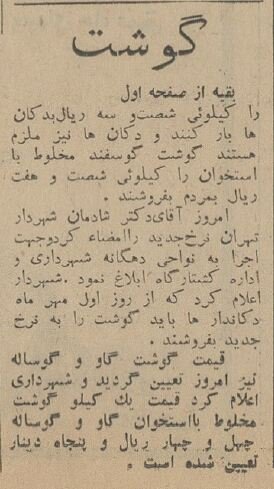 گوشت
بقیه از صفحه اول
را کیلوئی شصت‌و سه ریال‌بدکان
ها بار کنند و دکان ها نیز ملزم
هستند گوشت گوسفند مخلوط با
استخوان را کیلوئی شصت و هفت
ریال بمردم بفروشند .
امروز آقای‌دکتر شادمان شهردار
تهران نرخ‌جدید راامضاء کردوجهت
اجرا به نواحی دهگانه شهرداری و
اداره کشتارگاه ابلاغ نمود .شهردار
اعلام کرد که از روز اول مهر ماه
دکاندار ها باید گوشت را به نرخ
جدید بفروشند .
قیمت گوشت گاو و گوساله
نیز امروز تعیین گردید و شهرداری
اعلام کرد قیمت یك کیلو گوشت
مخلوط بااستخوان گاو و گوساله
چهل و چهار ریال و پنجاه دینار
تعیین شده است .